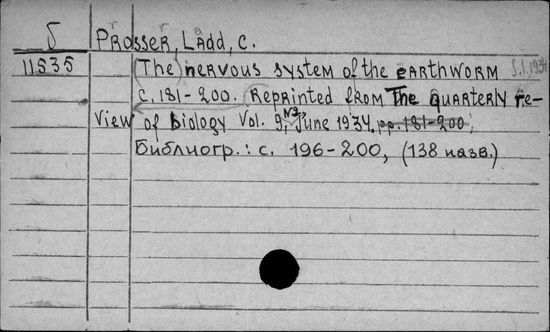 Б PROSSER, LADD, C.
11535 (The) nervous system of the earthworm S.l., 1934
c. 181-200. (Reprinted from The quarterly re-
view of biology Vol. 9, N2, June 1934. pp. 181-200,
Библиогр.: с. 196-200, (138 назв.)